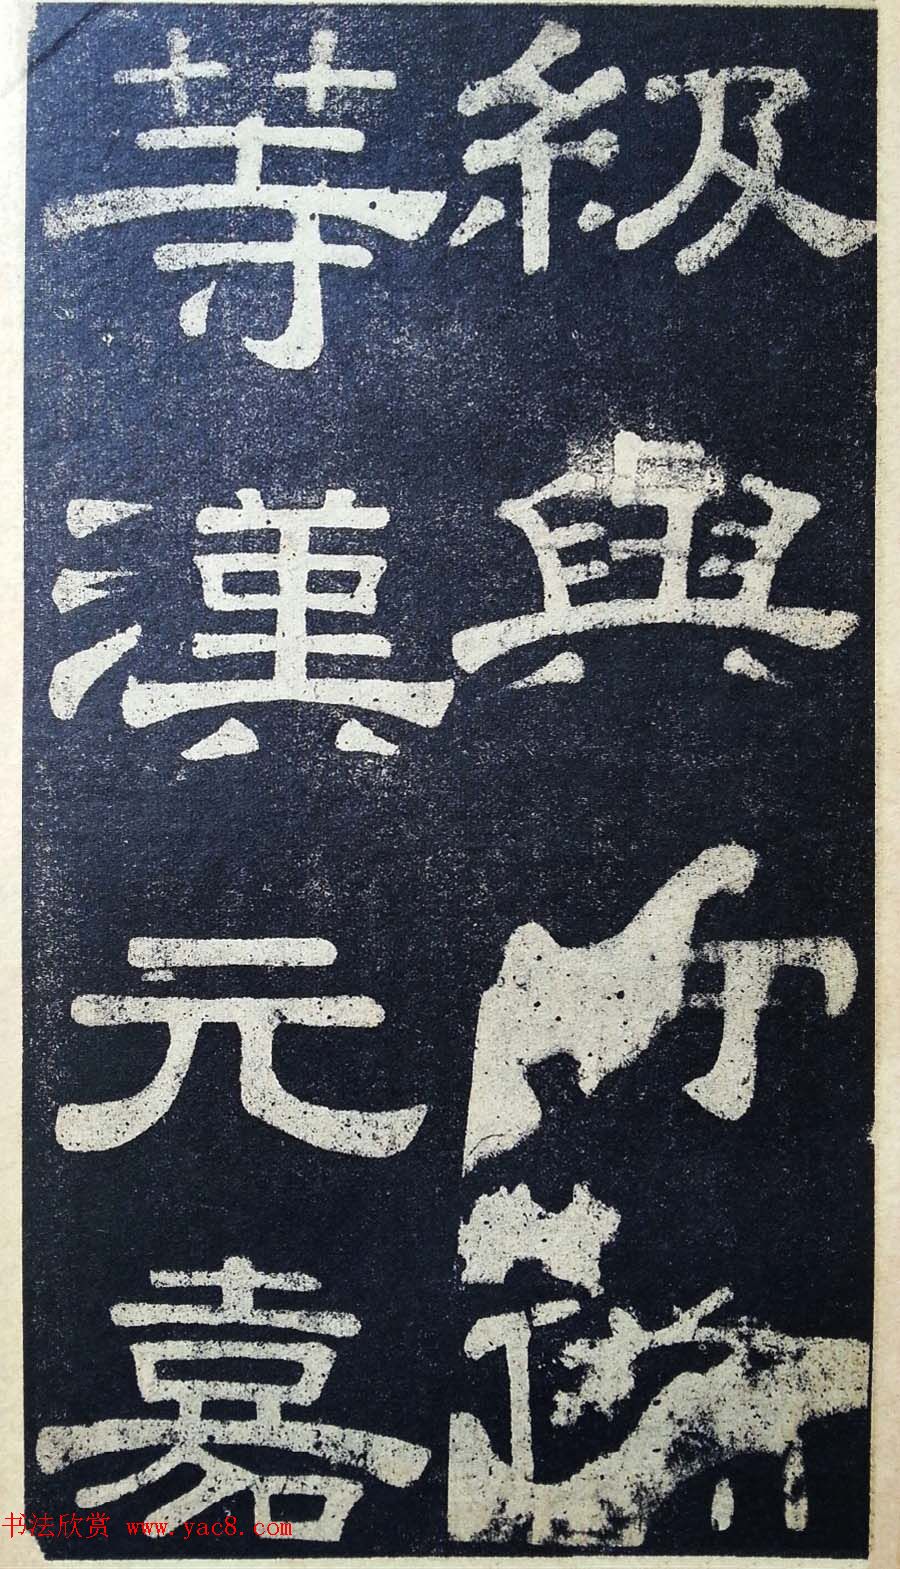 級與師
等漢元嘉
书法欣赏 www.yac8.com